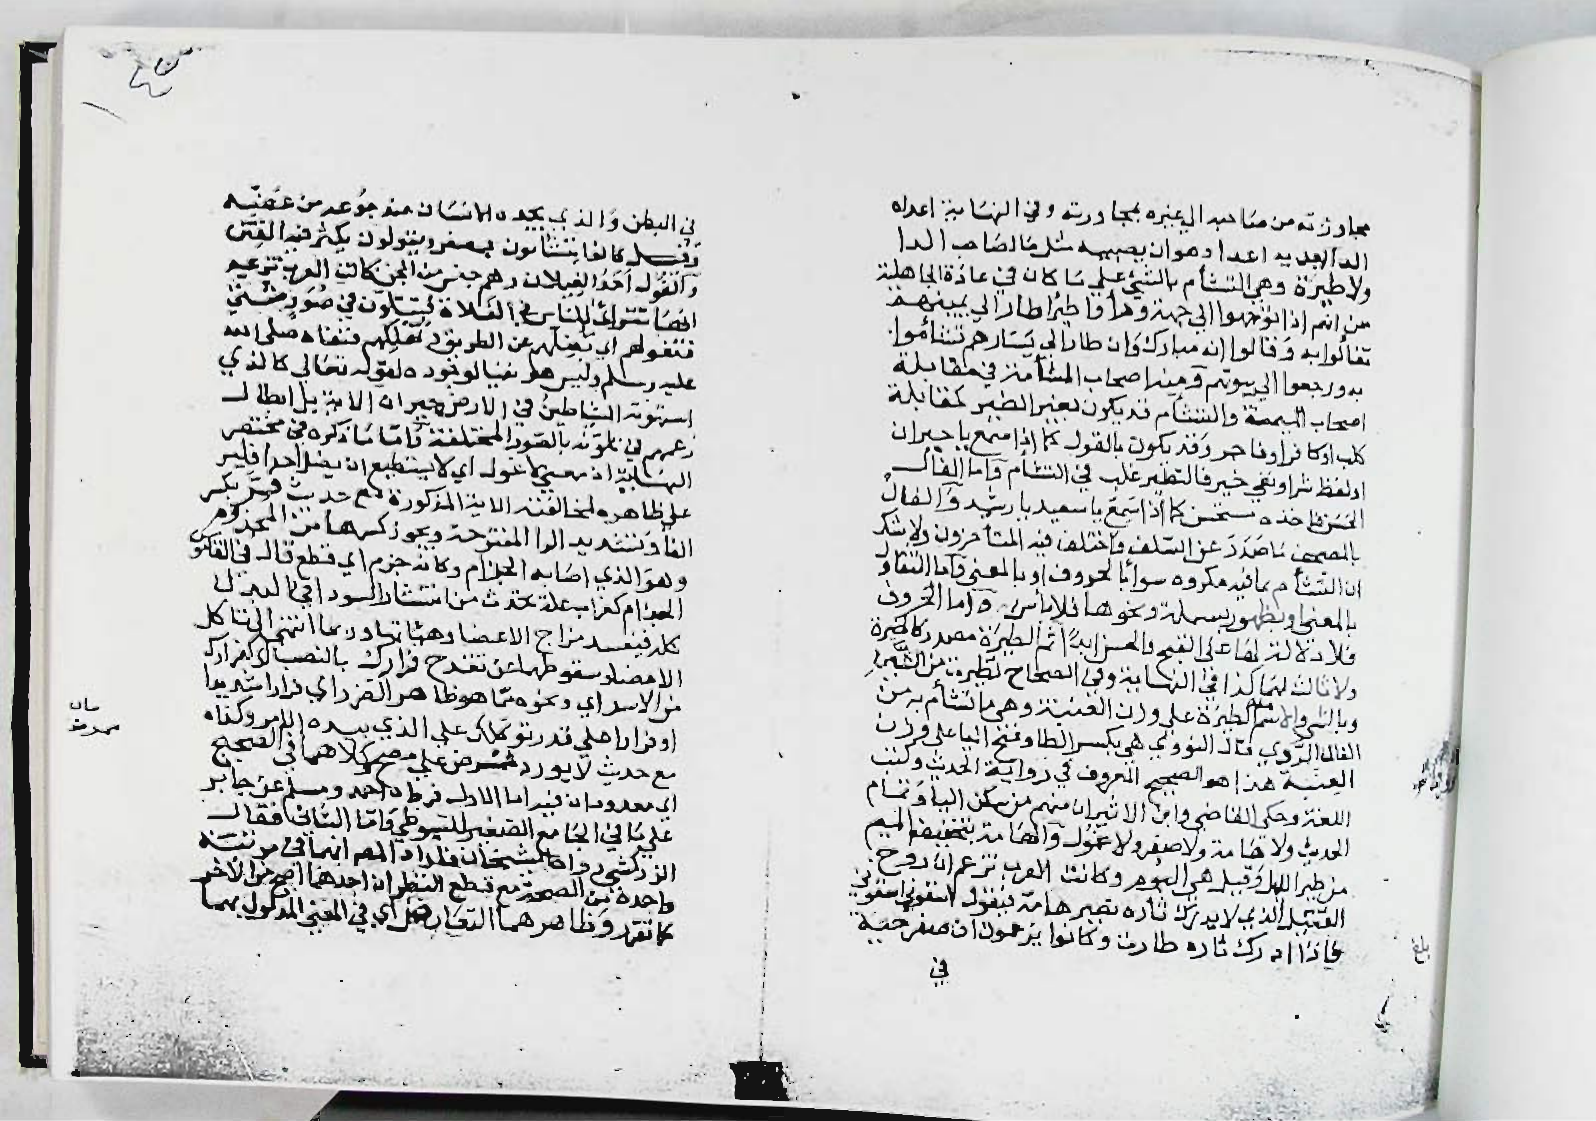 مجاوزته من صاحبه الي غيره بمجاورته وفي النهاية اعداه
الدا يعديه اعدا وهو ان يصيبه مثل ما لصاحب الدا
ولا طيرة وهي التشأم بالشي علي ما كان في عادة الجاهلية
من انهم اذا توجهوا الي جهة وراوا طيرا طار الي يمينهم
تفألوا به وقالوا انه مبارك وان طار الي يسارهم تشأموا
به ورجعوا الي بيوتهم ومنه اصحاب المشأمة في مقابلة
اصحاب الميمنة والتشأم قد يكون بغير الطير كمقابلة
كلب او كافر او فاجر وقد يكون بالقول كما اذا سمع يا حيران
او لفظ شر او نفي خير فالتطير غلب في التشأم واما الفال
الحسن فاخذه مستحسن كما اذا سمع يا سعيد يا رشيد والفال
بالمصحف ما صدر عن السلف واختلف فيه المتأخرون ولا شك
ان التشأم بما فيه مكروه سوا بالحروف او بالمعني واما التفاؤل
بالمعني او بظهور بسملة ونحوها فلا بأس به واما الحروف
فلا دلالة لها علي القبح والحسن ابدا ثم الطيرة مصدر كالخيرة
ولا ثالث لهما كذا في النهاية وفي الصحاح تطيرت من الشي
وبالشي والاسم الطيرة علي وزن العنبة وهي ما تشأم به من
الفال الردي قال النووي هي بكسر الطا وفتح اليا علي وزن
العنبة هذا هو الصحيح المعروف في رواية الحديث وكتب
اللغة وحكي القاضي وابن الاثير ان منهم من سكن اليا وتمام
الحديث ولا هامة ولا صفر ولا غول والهامة بتخفيف الميم
من طير الليل وقيل هي البوم وكانت العرب تزعم ان روح
القتيل الذي لا يدرك ثأره تصير هامة فيقول اسقوني اسقوني
فاذا ادرك ثاره طارت وكانوا يزعمون ان صفر حية
في
بلغ
في البطن والذي يجده الانسان عند جوعه من عضته
وقيل كانوا يتشأمون بصفر ويقولون يكثر فيه الفتن
والغول احد الغيلان وهم جنس من الجن كانت العرب تزعم
انها تتراأي للناس في الفلاة فتتلون في صور شتي
فتغولهم اي تضلهم عن الطريق وتهلكهم فنفاه صلي الله
عليه وسلم وليس هو نفيا لوجوده لقوله تعالي كالذي
استهوته الشياطين في الارض حيران الاية بل ابطال
زعمهم في تلونه بالصور المختلفة واما ما ذكره في مختصر
النهاية ان معني لا غول اي لا يستطيع ان يضل احدا فليس
علي ظاهره لمخالفته الاية المذكورة مع حديث فر بكسر
الفا وتشديد الرا المفتوحة ويجوز كسرها من المجذوم
وهو الذي اصابه الجذام وكانه جزم اي قطع قال في القاموس
الجذام كغراب علة تحدث من انتشار السودا في البدن
كله فيفسد مزاج الاعضا وهيئاتها وربما انتهي الي تاكل
الاعضا وسقوطها عن تقدح فرارك بالنصب اي كفرارك
من الاسد اي ونحوه مما هو ظاهر الضرر اي فرارا شديدا
او فرارا علي قدر توكلك علي الذي بيده الامر وكذا
مع حديث لا يورد ممرض علي مصح وكلاهما في الصحيح
اي معدودان فيه اما الاول فرواه احمد ومسلم عن جابر
علي ما في الجامع الصغير للسيوطي واما الثاني فقال
الزركشي رواه الشيخان فاراد المصم انهما في مرتبة
واحدة من الصحة مع قطع النظر ان احدهما اصح من الاخر
كما تقرر وظاهرهما التعارض اي في المعني المدلول بهما